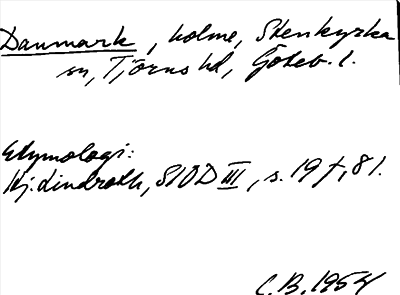 Danmark, holme, Stenkyrka
sn, Tjörns hd, Göteb. l.
Etymologi:
Hj. Lindroth, SIOD III, s. 19 f, 81.
C.B. 1954